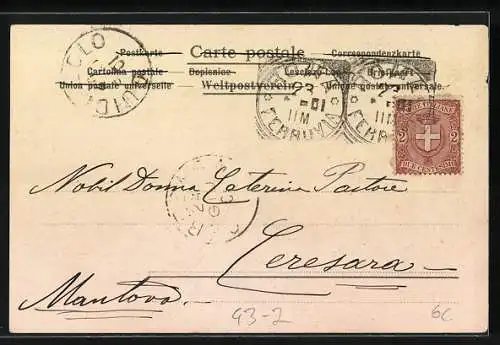 Postkarte Carte postale Correspondenzkarte
Cartolina postale Dopisnice Levelező-Lap Briefkaart
Union postale universelle Weltpostverein Unione postale universale
23
01
FERROVIA
2 2
DUE CENTESIMI
Nobil Donna Caterina Pastore
Ceresara
Mantova
93-2
6c